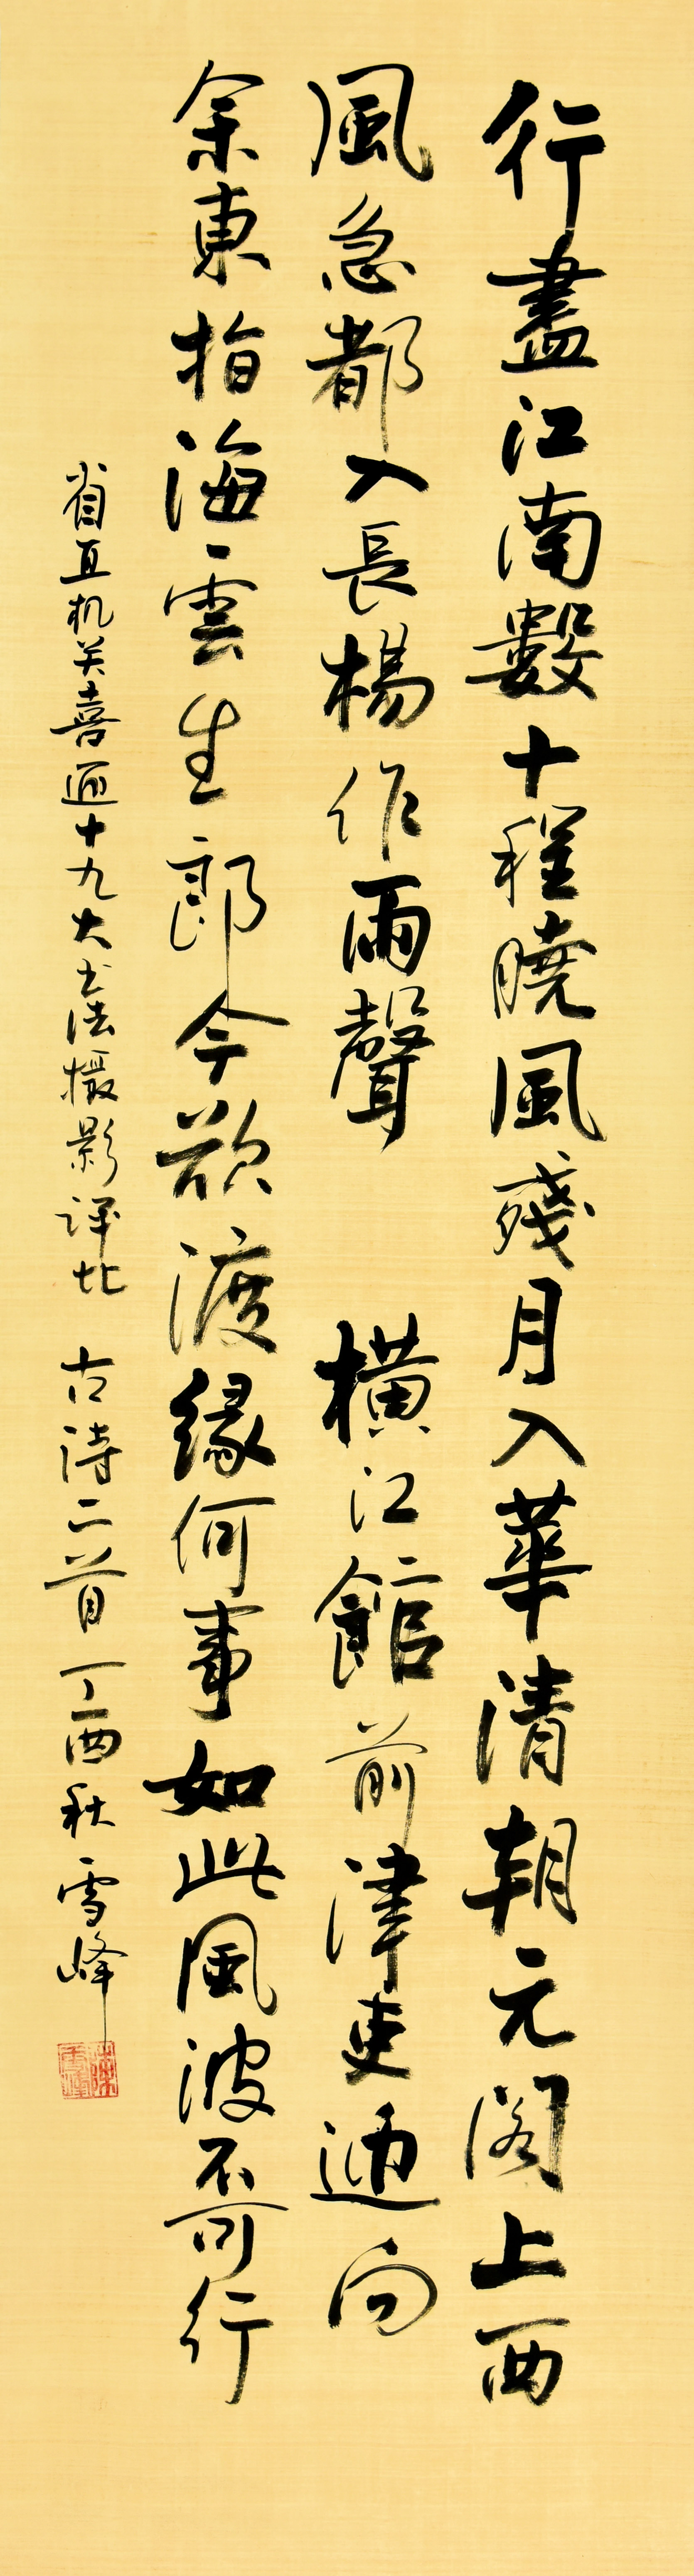 行盡江南數十程曉風殘月入華清朝元閣上西
風急都入長楊作雨聲 橫江館前津吏迎向
余東指海雲生郎今欲渡緣何事如此風波不可行
省直机关喜迎十九大书法摄影评比 古诗二首 丁酉秋 雪峰